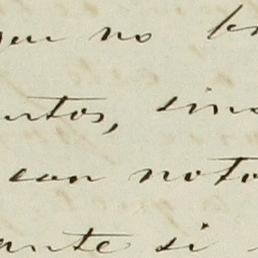 no
ntos, sino
con noto
ante si